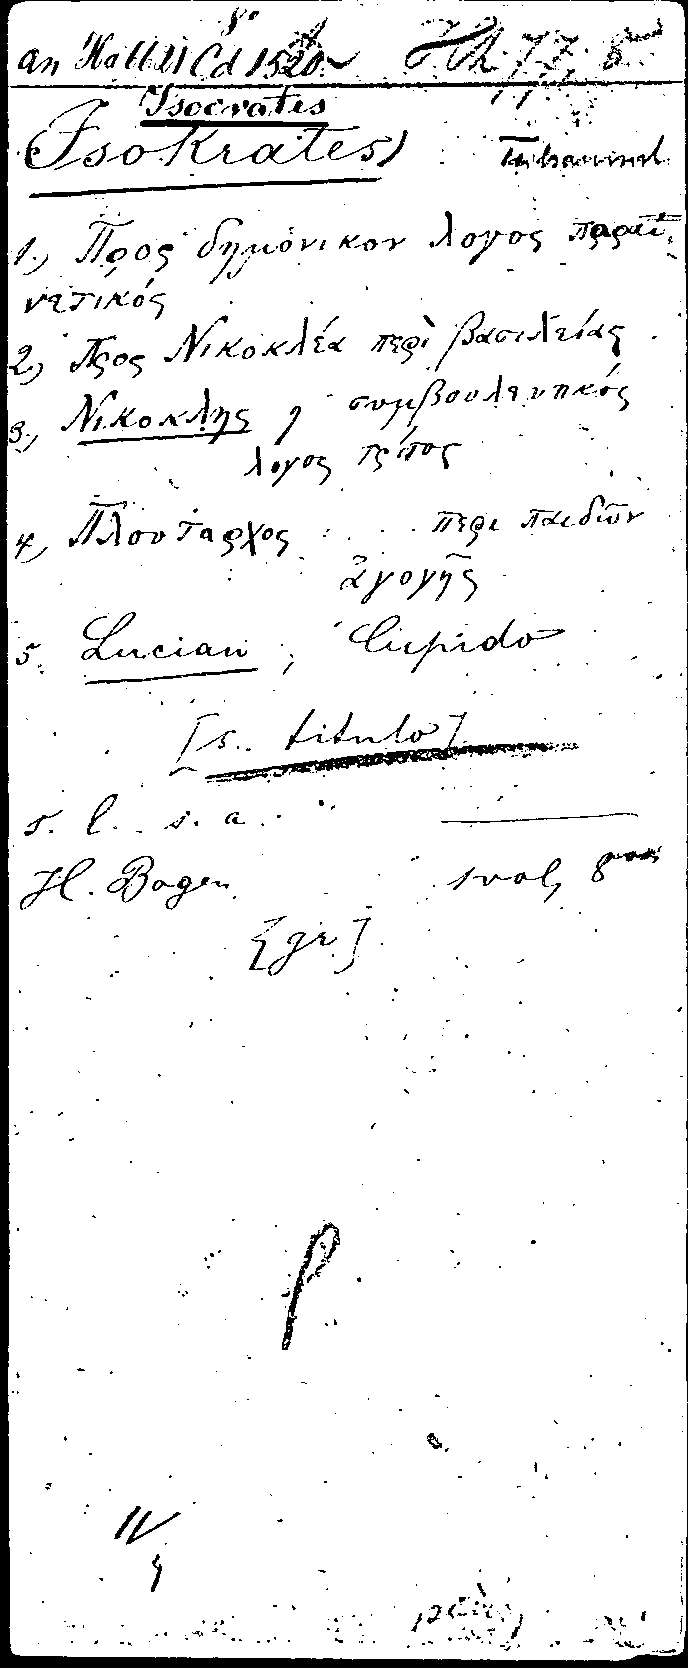 8°
an Halle Cd 1520
Isocrates
(Isokrates)
1., Προς δημόνικον λογος παραί-
νετικός
2, Προς Νικοκλέα περὶ βασιλείας
3., Νικοκλης η συμβουλευτικός
λογος τρίτος
4, Πλουταρχος . . . . περι παιδῶν
ἀγογῆς
5. Lucian, Cupido
[s. titulo]
s. l. s. a.
Bogen 1 vol, 8
[gr.]